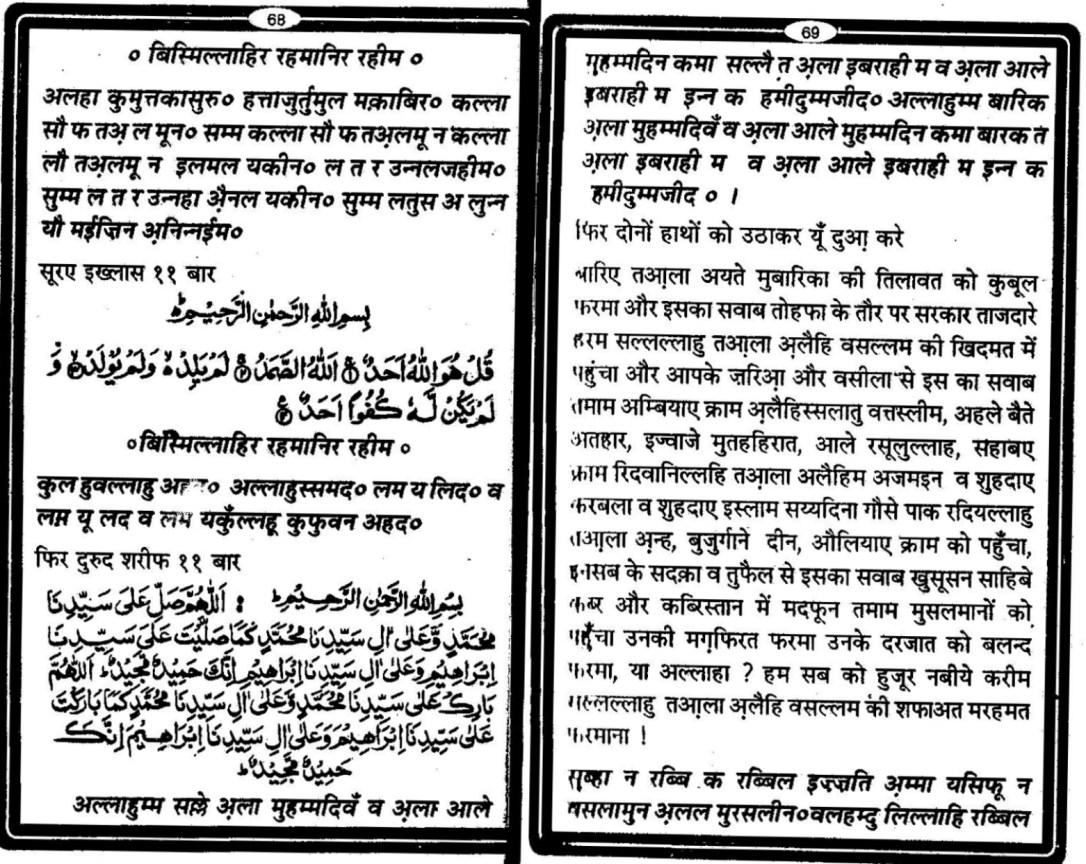 68
० बिस्मिल्लाहिर रहमानिर रहीम ०
अलहा कुमुत्तकासुरु० हत्ताजुर्तुमुल मक़ाबिर० कल्ला
सौ फ तअ़ ल मून० सम्म कल्ला सौ फ तअ़लमू न कल्ला
लौ तअ़लमू न इलमल यकीन० ल त र उन्नलजहीम०
सुम्म ल त र उन्नहा अै़नल यकीन० सुम्म लतुस अ लुन्न
यौ मईज़िन अ़निन्नईम०
सूरए इख्लास ११ बार
بِسْمِ اللهِ الرَّحْمٰنِ الرَّحِيْمِ ط
قُلْ هُوَ اللهُ اَحَدٌ ۝ اَللهُ الصَّمَدُ ۝ لَمْ يَلِدْ ۙ وَلَمْ يُوْلَدْ ۝ وَ
لَمْ يَكُنْ لَّهٗ كُفُوًا اَحَدٌ ۝
०बिस्मिल्लाहिर रहमानिर रहीम ०
कुल हुवल्लाहु ० अल्लाहुस्समद० लम य लिद० व
लम यू लद व लम यकुँल्लहू कुफुवन अहद०
फिर दुरुद शरीफ ११ बार
بِسْمِ اللهِ الرَّحْمٰنِ الرَّحِيْمِ ط : اَللّٰهُمَّ صَلِّ عَلىٰ سَيِّدِنَا
مُحَمَّدٍ وَّعَلىٰ اٰلِ سَيِّدِنَا مُحَمَّدٍ كَمَا صَلَّيْتَ عَلىٰ سَيِّدِنَا
اِبْرَاهِيْمَ وَعَلىٰ اٰلِ سَيِّدِنَا اِبْرَاهِيْمَ اِنَّكَ حَمِيْدٌ مَّجِيْدٌ ط اَللّٰهُمَّ
بَارِكْ عَلىٰ سَيِّدِنَا مُحَمَّدٍ وَّعَلىٰ اٰلِ سَيِّدِنَا مُحَمَّدٍ كَمَا بَارَكْتَ
عَلىٰ سَيِّدِنَا اِبْرَاهِيْمَ وَعَلىٰ اٰلِ سَيِّدِنَا اِبْرَاهِيْمَ اِنَّكَ
حَمِيْدٌ مَّجِيْدٌ ط
अल्लाहुम्म सल्ले अ़ला मुहम्मदिवँ व अ़ला आले
69
मुहम्मदिन कमा सल्लै त अ़ला इबराही म व अ़ला आले
इबराही म इन्न क हमीदुम्मजीद० अल्लाहुम्म बारिक
अ़ला मुहम्मदिवँ व अ़ला आले मुहम्मदिन कमा बारक त
अ़ला इबराही म व अ़ला आले इबराही म इन्न क
हमीदुम्मजीद ० ।
फिर दोनों हाथों को उठाकर यूँ दुआ़ करे
बारिए तआ़ला अयते मुबारिका की तिलावत को कुबूल
फरमा और इसका सवाब तोहफा के तौर पर सरकार ताजदारे
हरम सल्लल्लाहु तआ़ला अ़लैहि वसल्लम की खिदमत में
पहुंचा और आपके ज़रिआ़ और वसीला से इस का सवाब
तमाम अम्बियाए क्राम अ़लैहिस्सलातु वत्तस्लीम, अहले बैते
अतहार, इज्वाजे मुतहहिरात, आले रसूलुल्लाह, सहाबए
क्राम रिदवानिल्लहि तआ़ला अलैहिम अजमइन व शुहदाए
करबला व शुहदाए इस्लाम सय्यदिना गौसे पाक रदियल्लाहु
तआ़ला अ़न्ह, बुजुर्गाने दीन, औलियाए क्राम को पहुँचा,
इनसब के सदक़ा व तुफैल से इसका सवाब खुसूसन साहिबे
कब्र और कब्रिस्तान में मदफून तमाम मुसलमानों को
पहुँचा उनकी मग़्फिरत फरमा उनके दरजात को बलन्द
फरमा, या अल्लाहा ? हम सब को हुजूर नबीये करीम
सल्लल्लाहु तआ़ला अ़लैहि वसल्लम की शफाअत मरहमत
फरमाना !
सुब्हा न रब्बि क रब्बिल इज़्ज़ति अ़म्मा यसिफू न
वसलामुन अ़लल मुरसलीन०वलहम्दु लिल्लाहि रब्बिल